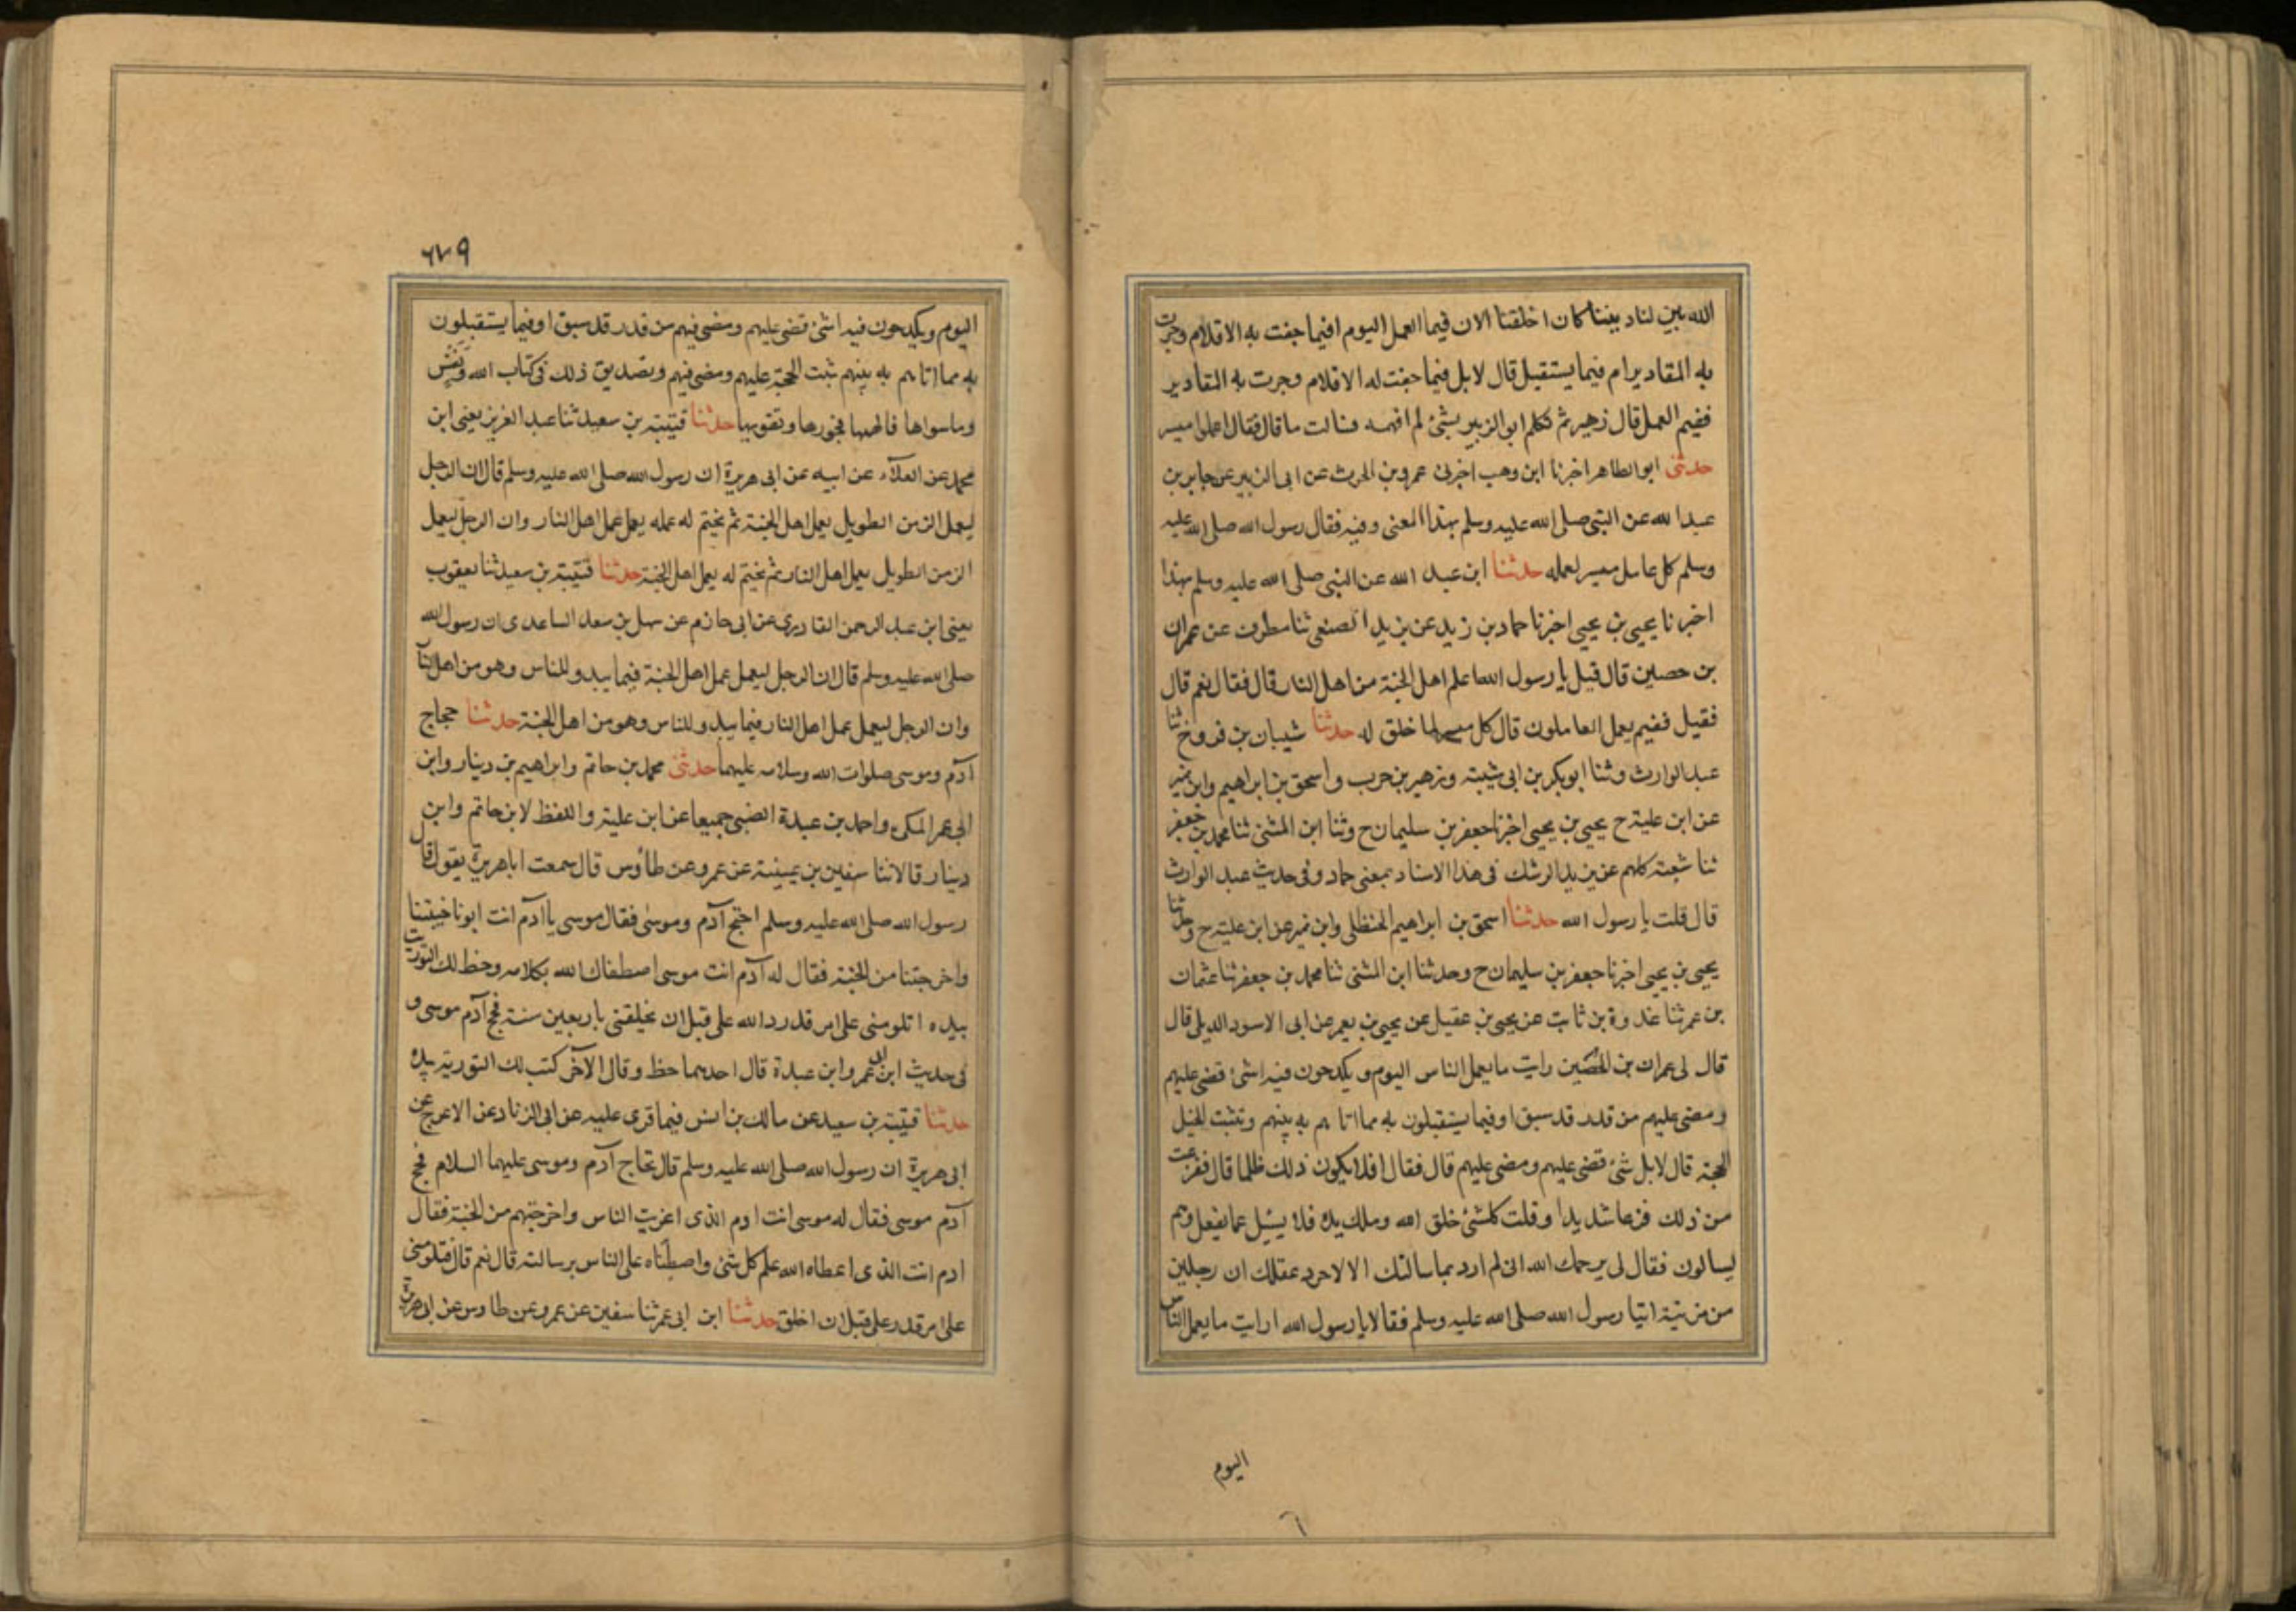 الله بين لنا ديننا كان اخلقنا الان فيما العمل اليوم افيما جفت به الاقلام وجرت
به المقادير ام فيما يستقبل قال لا بل فيما جفت له الاقلام وجرت به المقادير
ففيم العمل قال زهير ثم تكلم ابو الزبير بشئ لم افهمه فسالت ما قال فقال اعملوا ميسر
حدثنى ابو الطاهر اخبرنا ابن وهب اخبرنى عمرو بن الحرث عن ابى الزبير عن جابر بن
عبد الله عن النبى صلى الله عليه وسلم بهذا المعنى وفيه فقال رسول الله صلى الله عليه
وسلم كل عامل ميسر لعمله حدثنا ابن عبد الله عن النبى صلى الله عليه وسلم بهذا
اخبرنا يحيى بن يحيى اخبرنا حماد بن زيد عن يزيد الضبعى ثنا مطرف عن عمران
بن حصين قال قيل يا رسول الله اعلم اهل الجنة من اهل النار قال فقال نعم قال
فقيل ففيم يعمل العاملون قال كل ميسر لما خلق له حدثنا شيبان بن فروخ ثنا
عبد الوارث وثنا ابو بكر بن ابى شيبة وزهير بن حرب واسحق بن ابراهيم وابن نمير
عن ابن علية ح يحيى بن يحيى اخبرنا جعفر بن سليمان ح وثنا ابن المثنى ثنا محمد بن جعفر
ثنا شعبة كلهم عن يزيد الرشك فى هذا الاسناد بمعنى حماد وفى حديث عبد الوارث
قال قلت يا رسول الله حدثنا اسحق بن ابراهيم الحنظلى وابن نمير عن ابن علية ح وحدثنا
يحيى بن يحيى اخبرنا جعفر بن سليمان ح وحدثنا ابن المثنى ثنا محمد بن جعفر ثنا عثمان
بن عمر ثنا عذوة بن ثابت عن يحيى بن عقيل عن يحيى بن يعمر عن ابى الاسود الديلى قال
قال لى عمران بن الحصين رايت ما يعمل الناس اليوم ويكدحون فيه اشئ قضى عليهم
ومضى عليهم من قدر قد سبق او فيما يستقبلون به مما اتاهم به بينهم وتثبت
الحجة قال لا بل شئ قضى عليهم ومضى عليهم قال فقال افلا يكون ذلك ظلما قال ففزعت
من ذلك فزعا شديدا وقلت كلشئ خلق الله وملك يده فلا يسئل عما يفعل وهم
يسالون فقال لى يرحمك الله انى لم ارد بما سالتك الا لاحرد عقلك ان رجلين
من مزينة اتيا رسول الله صلى الله عليه وسلم فقالا يا رسول الله ارايت ما يعمل الناس
اليوم
٦
٦٧٩
اليوم ويكدحون فيه اشئ قضى عليهم ومضى فيهم من قدر قد سبق او فيما يستقبلون
به مما اتاهم به بينهم ثبت الحجة عليهم ومضى فيهم وتصديق ذلك فى كتاب الله ونفس
وما سواها فالهمها فجورها وتقويها حدثنا قتيبة بن سعيد ثنا عبد العزيز يعنى ابن
محمد عن العلاء عن ابيه عن ابى هريرة ان رسول الله صلى الله عليه وسلم قال ان الرجل
ليعمل الزمن الطويل بعمل اهل الجنة ثم يختم له عمله بعمل اهل النار وان الرجل ليعمل
الزمن الطويل بعمل اهل النار ثم يختم له بعمل اهل الجنة حدثنا قتيبة بن سعيد ثنا يعقوب
يعنى ابن عبد الرحمن القاديرى عن ابى حازم عن سهل بن سعد الساعدى ان رسول الله
صلى الله عليه وسلم قال ان الرجل ليعمل عمل اهل الجنة فيما يبدو للناس وهو من اهل النار
وان الرجل ليعمل عمل اهل النار فيما يبدو للناس وهو من اهل الجنة حدثنا حجاج
آدم وموسى صلوات الله وسلامه عليهما حدثنى محمد بن حاتم وابراهيم بن دينار وابن
ابى عمر المكى واحمد بن عبدة الضبى جميعا عن ابن علية واللفظ لابن حاتم وابن
دينار قالا ثنا سفين بن عيينة عن عمرو عن طاوس قال سمعت ابا هريرة يقول قال
رسول الله صلى الله عليه وسلم احتج آدم وموسى فقال موسى يا آدم انت ابونا خيبتنا
واخرجتنا من الجنة فقال له آدم انت موسى اصطفاك الله بكلامه وخط لك التوريت
بيده اتلومنى على امر قدرد الله على قبل ان يخلقنى باربعين سنة فحج آدم موسى و
فى حديث ابن ابى عمر وابن عبدة قال احدهما خط وقال الآخر كتب لك التورية بيده
حدثنا قتيبة بن سعيد عن مالك بن انس فيما قرى عليه عن ابى الزناد عن الاعرج عن
ابى هريرة ان رسول الله صلى الله عليه وسلم قال تحاج آدم وموسى عليهما السلام فحج
آدم موسى فقال له موسى انت ادم الذى اغويت الناس واخرجتهم من الجنة فقال
ادم انت الذى اعطاه الله علم كل شئ واصطفاه على الناس برسالته قال نعم قال فتلومنى
على امر قدر على قبل ان اخلق حدثنا ابن ابى عمر ثنا سفين عن عمرو عن طاوس عن ابى هريرة